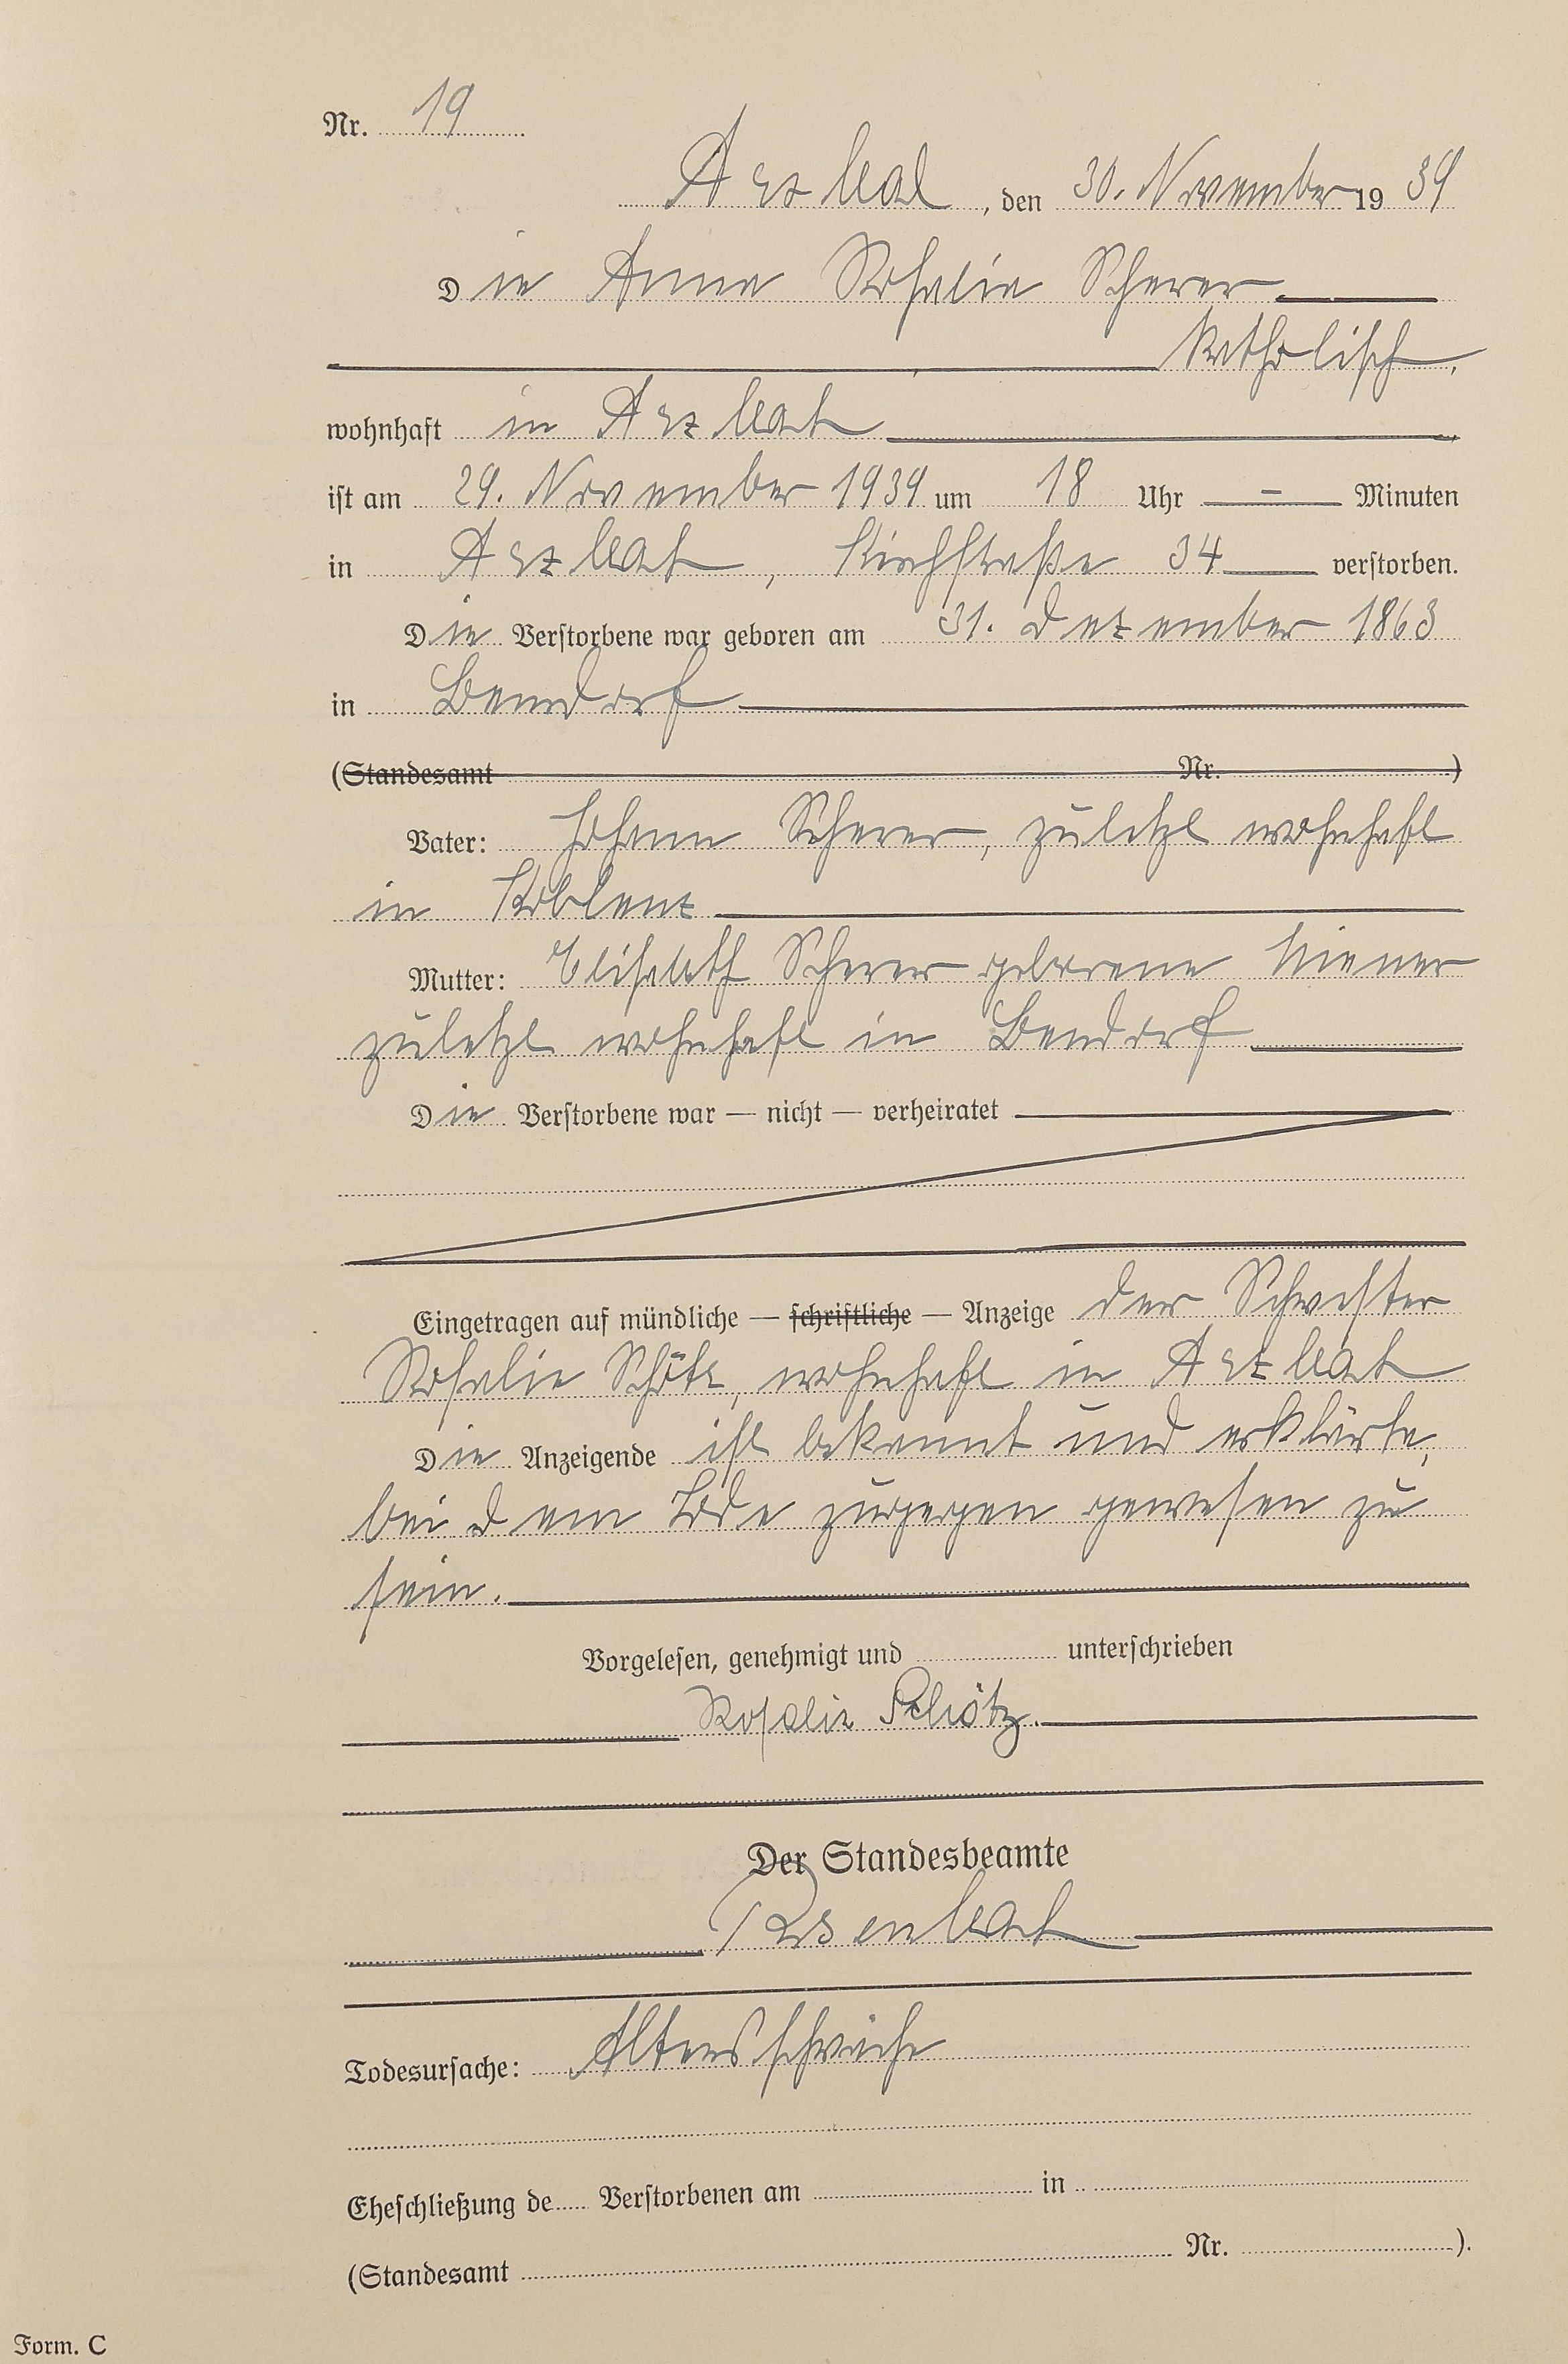 Nr. 19
Arzbach, den 30. November 1939
Die Anna Rosalie Scherer
katholisch,
wohnhaft in Arzbach
ist am 29. November 1939 um 18 Uhr — Minuten
in Arzbach, Kirchstraße 34 verstorben.
Die Verstorbene war geboren am 31. Dezember 1863
in Bendorf
(Standesamt Nr. )
Vater: Johann Scherer, zuletzt wohnhaft
in Koblenz
Mutter: Elisabeth Scherer geborene
zuletzt wohnhaft in Bendorf
Die Verstorbene war — nicht — verheiratet
Eingetragen auf mündliche — schriftliche — Anzeige der Schwester
Rosalie Schötz, wohnhaft in Arzbach
Die Anzeigende ist bekannt und erklärte,
bei dem Tode zugegen gewesen zu
sein.
Vorgelesen, genehmigt und unterschrieben
Rosalie Schötz.
Der Standesbeamte
Todesursache: Altersschwäche
Eheschließung de Verstorbenen am in
(Standesamt Nr. ).
Form. C